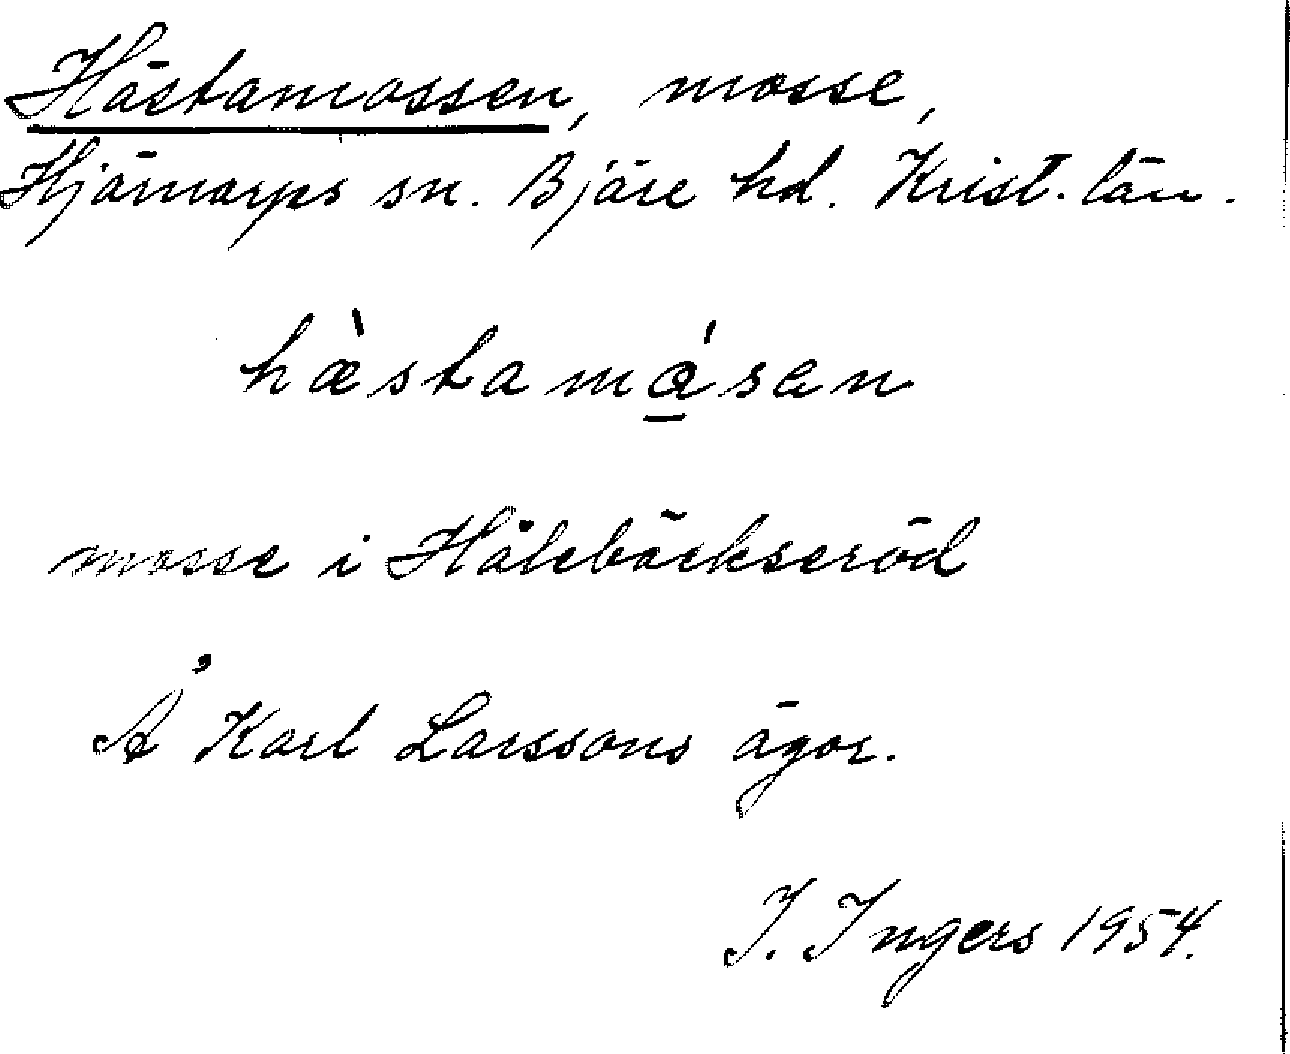 Hästamossen, mosse,
Hjärnarps sn. Bjäre hd. Krist. län.
hæ̀stamǻ̱san
mosse i Hålebäckseröd
Å Karl Larssons ägor.
I. Ingers 1954.